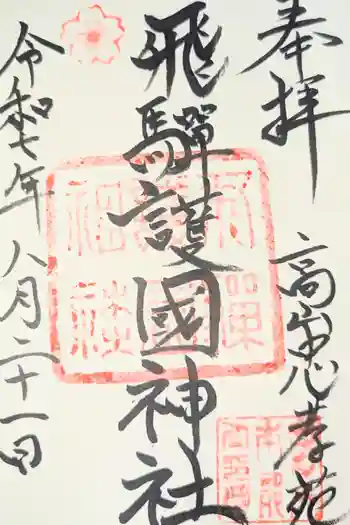 奉拝
高山忠孝苑
飛驒護國神社
令和七年八月二十一日